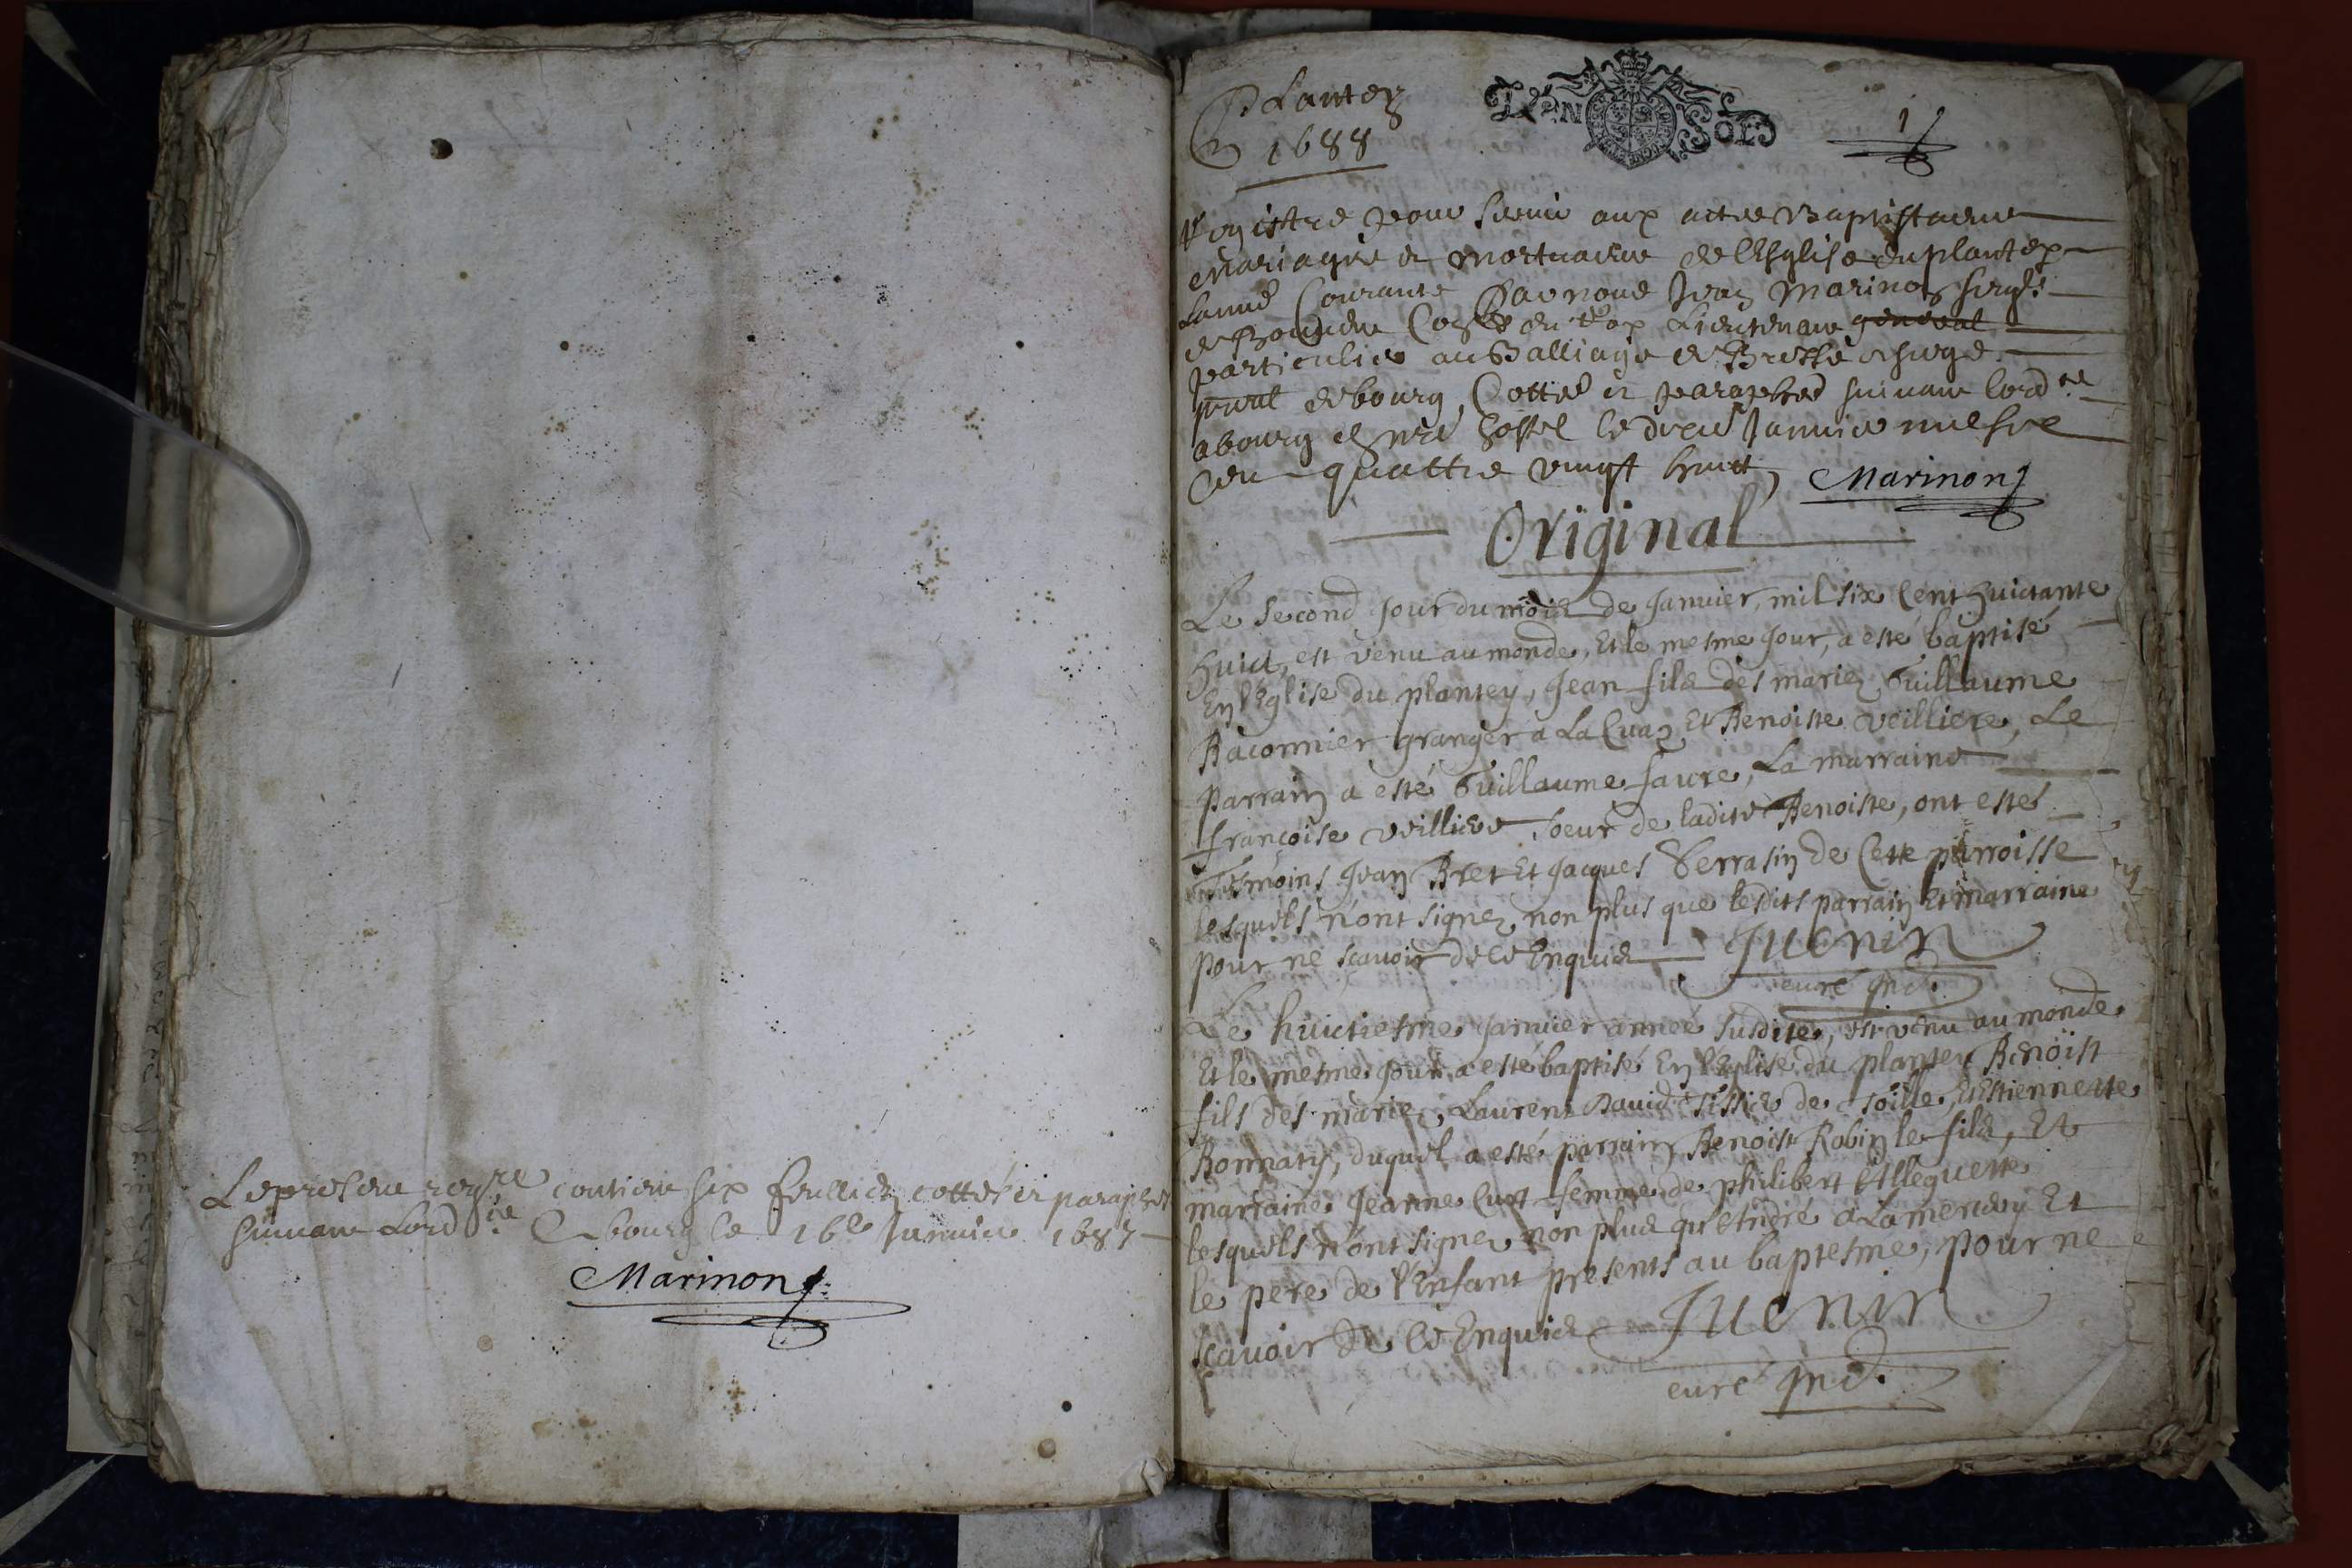 Le present reg.re contient six feulliets cottés et paraphes
suivant Lord.ce A bourg le 16e Janvier 1687
Marinon
Plantey
1688
1
Registre pour servir aux actes Baptistaires
Mariages et mortuaires de l'Esglise du plantey
Lannée Courante Par nous Jean Marinon
Con.er du Roy Lieutenant general
particulier au Balliage de Bresse et siege
p.nal de bourg Cotté et paraphé suivant lord.ce
a bourg en n.re hostel le Janvier mil six
cent quattre vingt huict Marinon
Original
Le second jour du mois de Janvier, mil six Cent huictante
huict, est venu au monde, Et le mesme jour, a esté baptisé
En l'Eglise du plantey, Jean fils des mariez Guillaume
Raconnier granger a La Et Benoiste veilliere, Le
parrain a esté Guillaume favre, La marraine
françoise veilliere soeur de ladite Benoiste, ont estés
Tesmoins Jean Bret Et Jacques Serrasin de Cette parroisse
lesquels n'ont signez non plus que lesdits parrain Et marraine
pour ne sçavoir de ce Enquis Juenin
curé ind.
Le huictiesme Janvier année susdite, est venu au monde
Et le mesme jour a esté baptisé En l'Eglise du plantey Benoist
fils des mariez, Laurent David tissier de toille, Et Estiennette
Bonnaty, duquel a esté parrain Benoist Robin le fils, Et
marraine Jeanne Curt femme de philibert
lesquels n'ont signez non plus qu'André Et
le pere de l'Enfant presents au baptesme, pour ne
sçavoir de ce Enquis Juenin
curé ind.